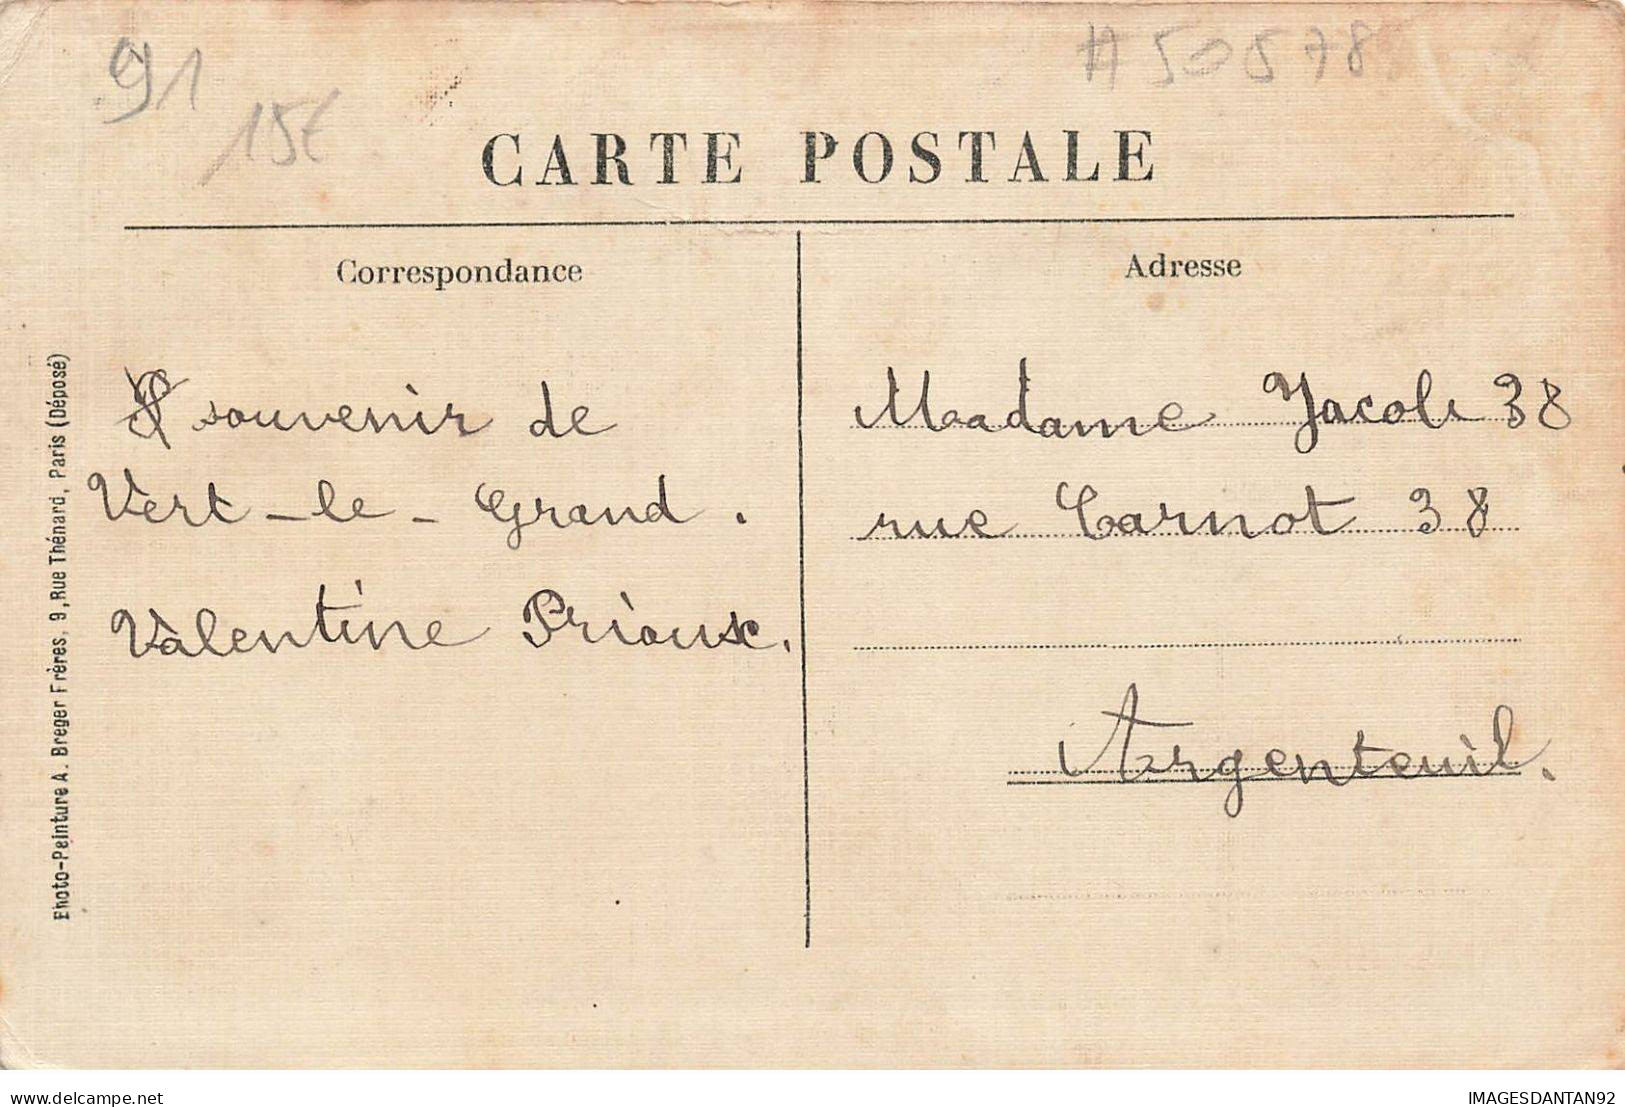 91
15€
#50578
CARTE POSTALE
Correspondance
Adresse
souvenir de
Vert-le-Grand.
Valentine Prioux.
Madame Jacob 38
rue Carnot 38
Argenteuil.
Photo-Peinture A. Breger Frères, 9, Rue Thénard, Paris (Déposé)
www.delcampe.net
IMAGESDANTAN92